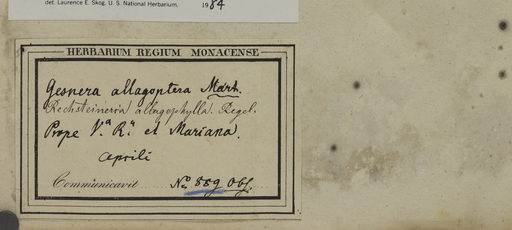 det. Laurence E. Skog, U. S. National Herbarium, 1984
HERBARIUM REGIUM MONACENSE
Gesnera allagoptera Mart.
Rechsteineria allagophylla. Regel.
Prope Vª. Rª. et Mariana.
Aprili
Communicavit No. 889 Obs.